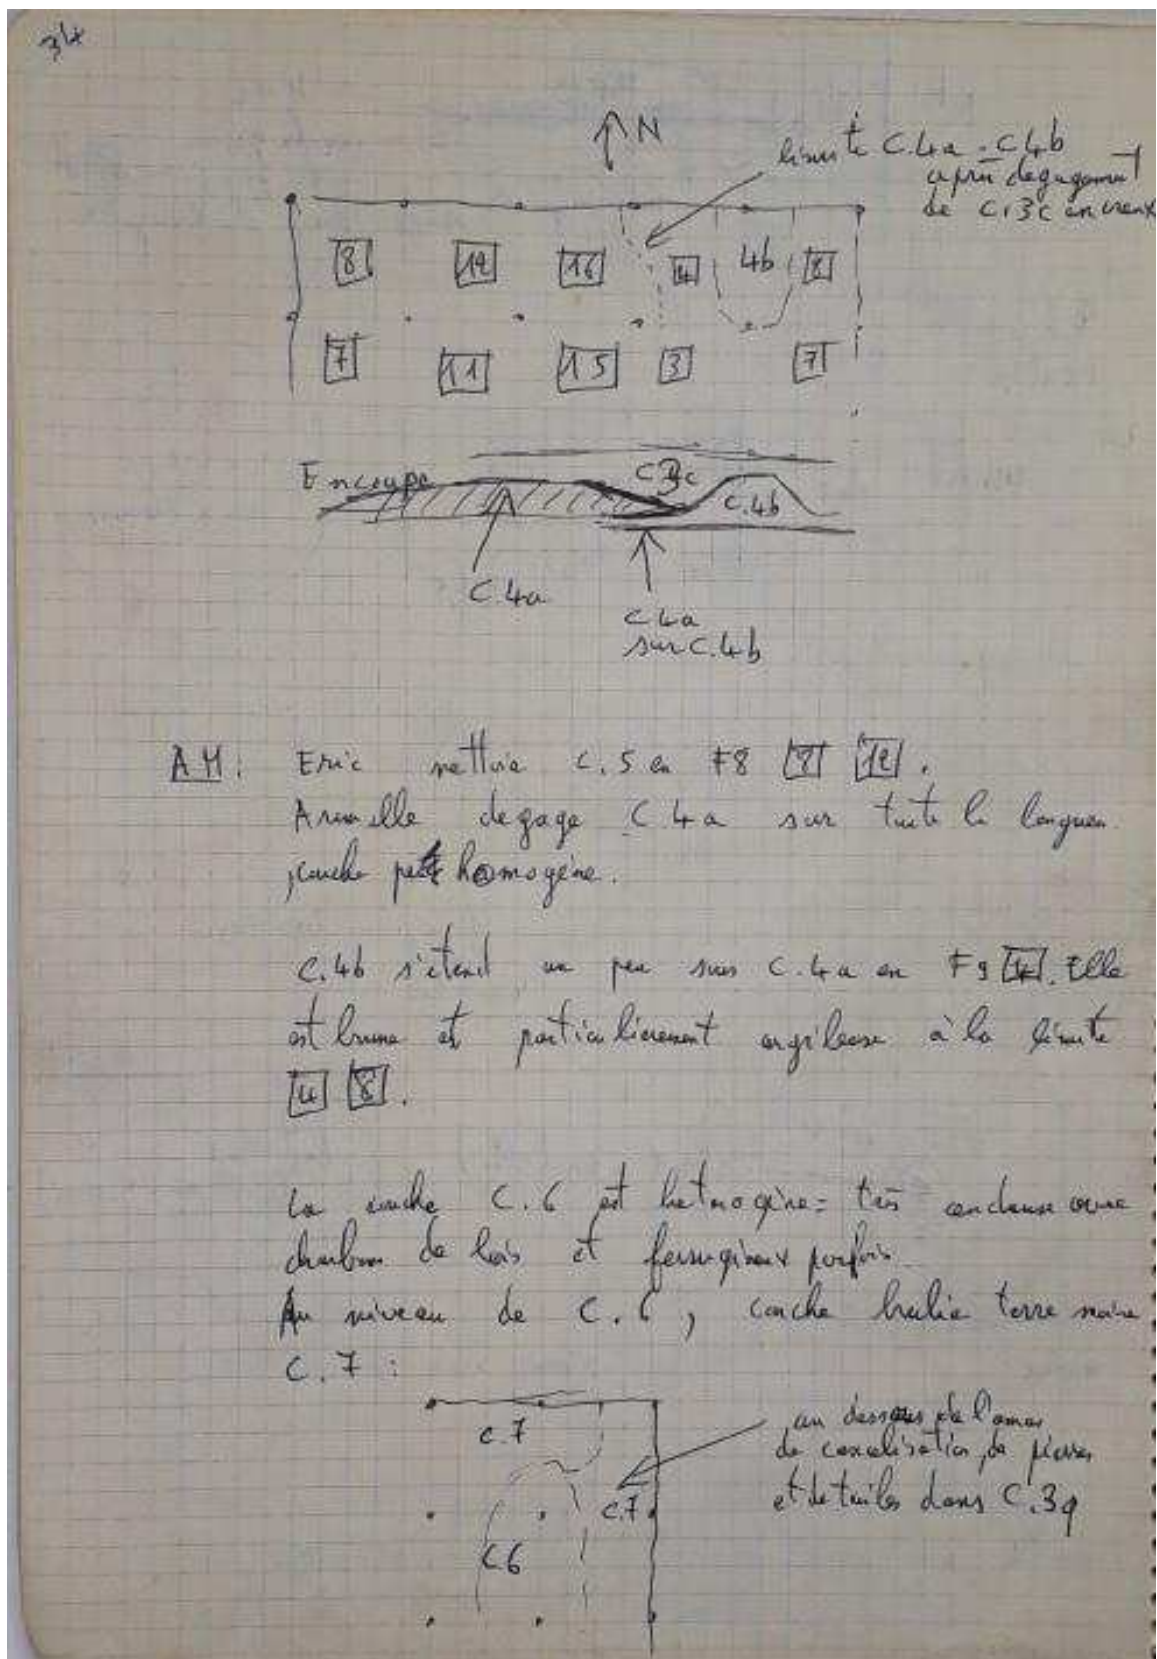 34
N
limite C.4a - C4b
après degagement
de C.3c en creux
8 12 16 4 4b 8
7 11 15 3 7
En coupe
C3c
C.4b
C.4a
C4a
sur C.4b
AM: Eric nettoie C.5 en F8 8 12.
Armelle degage C4a sur toute la longueur
couche homogène.
C.4b s'etend un peu sur C.4a en F9 4. Elle
est brune et particulierement argileuse à la limite
4 8.
La couche C.6 est heterogène = très cendreuse avec
charbon de bois et ferrugineux parfois
Au niveau de C.6, couche brulée terre noire
C.7 :
c.7
au dessous de l'amas
de canalisation, de pierres
et de tuiles dans C.3q
c.7
C6